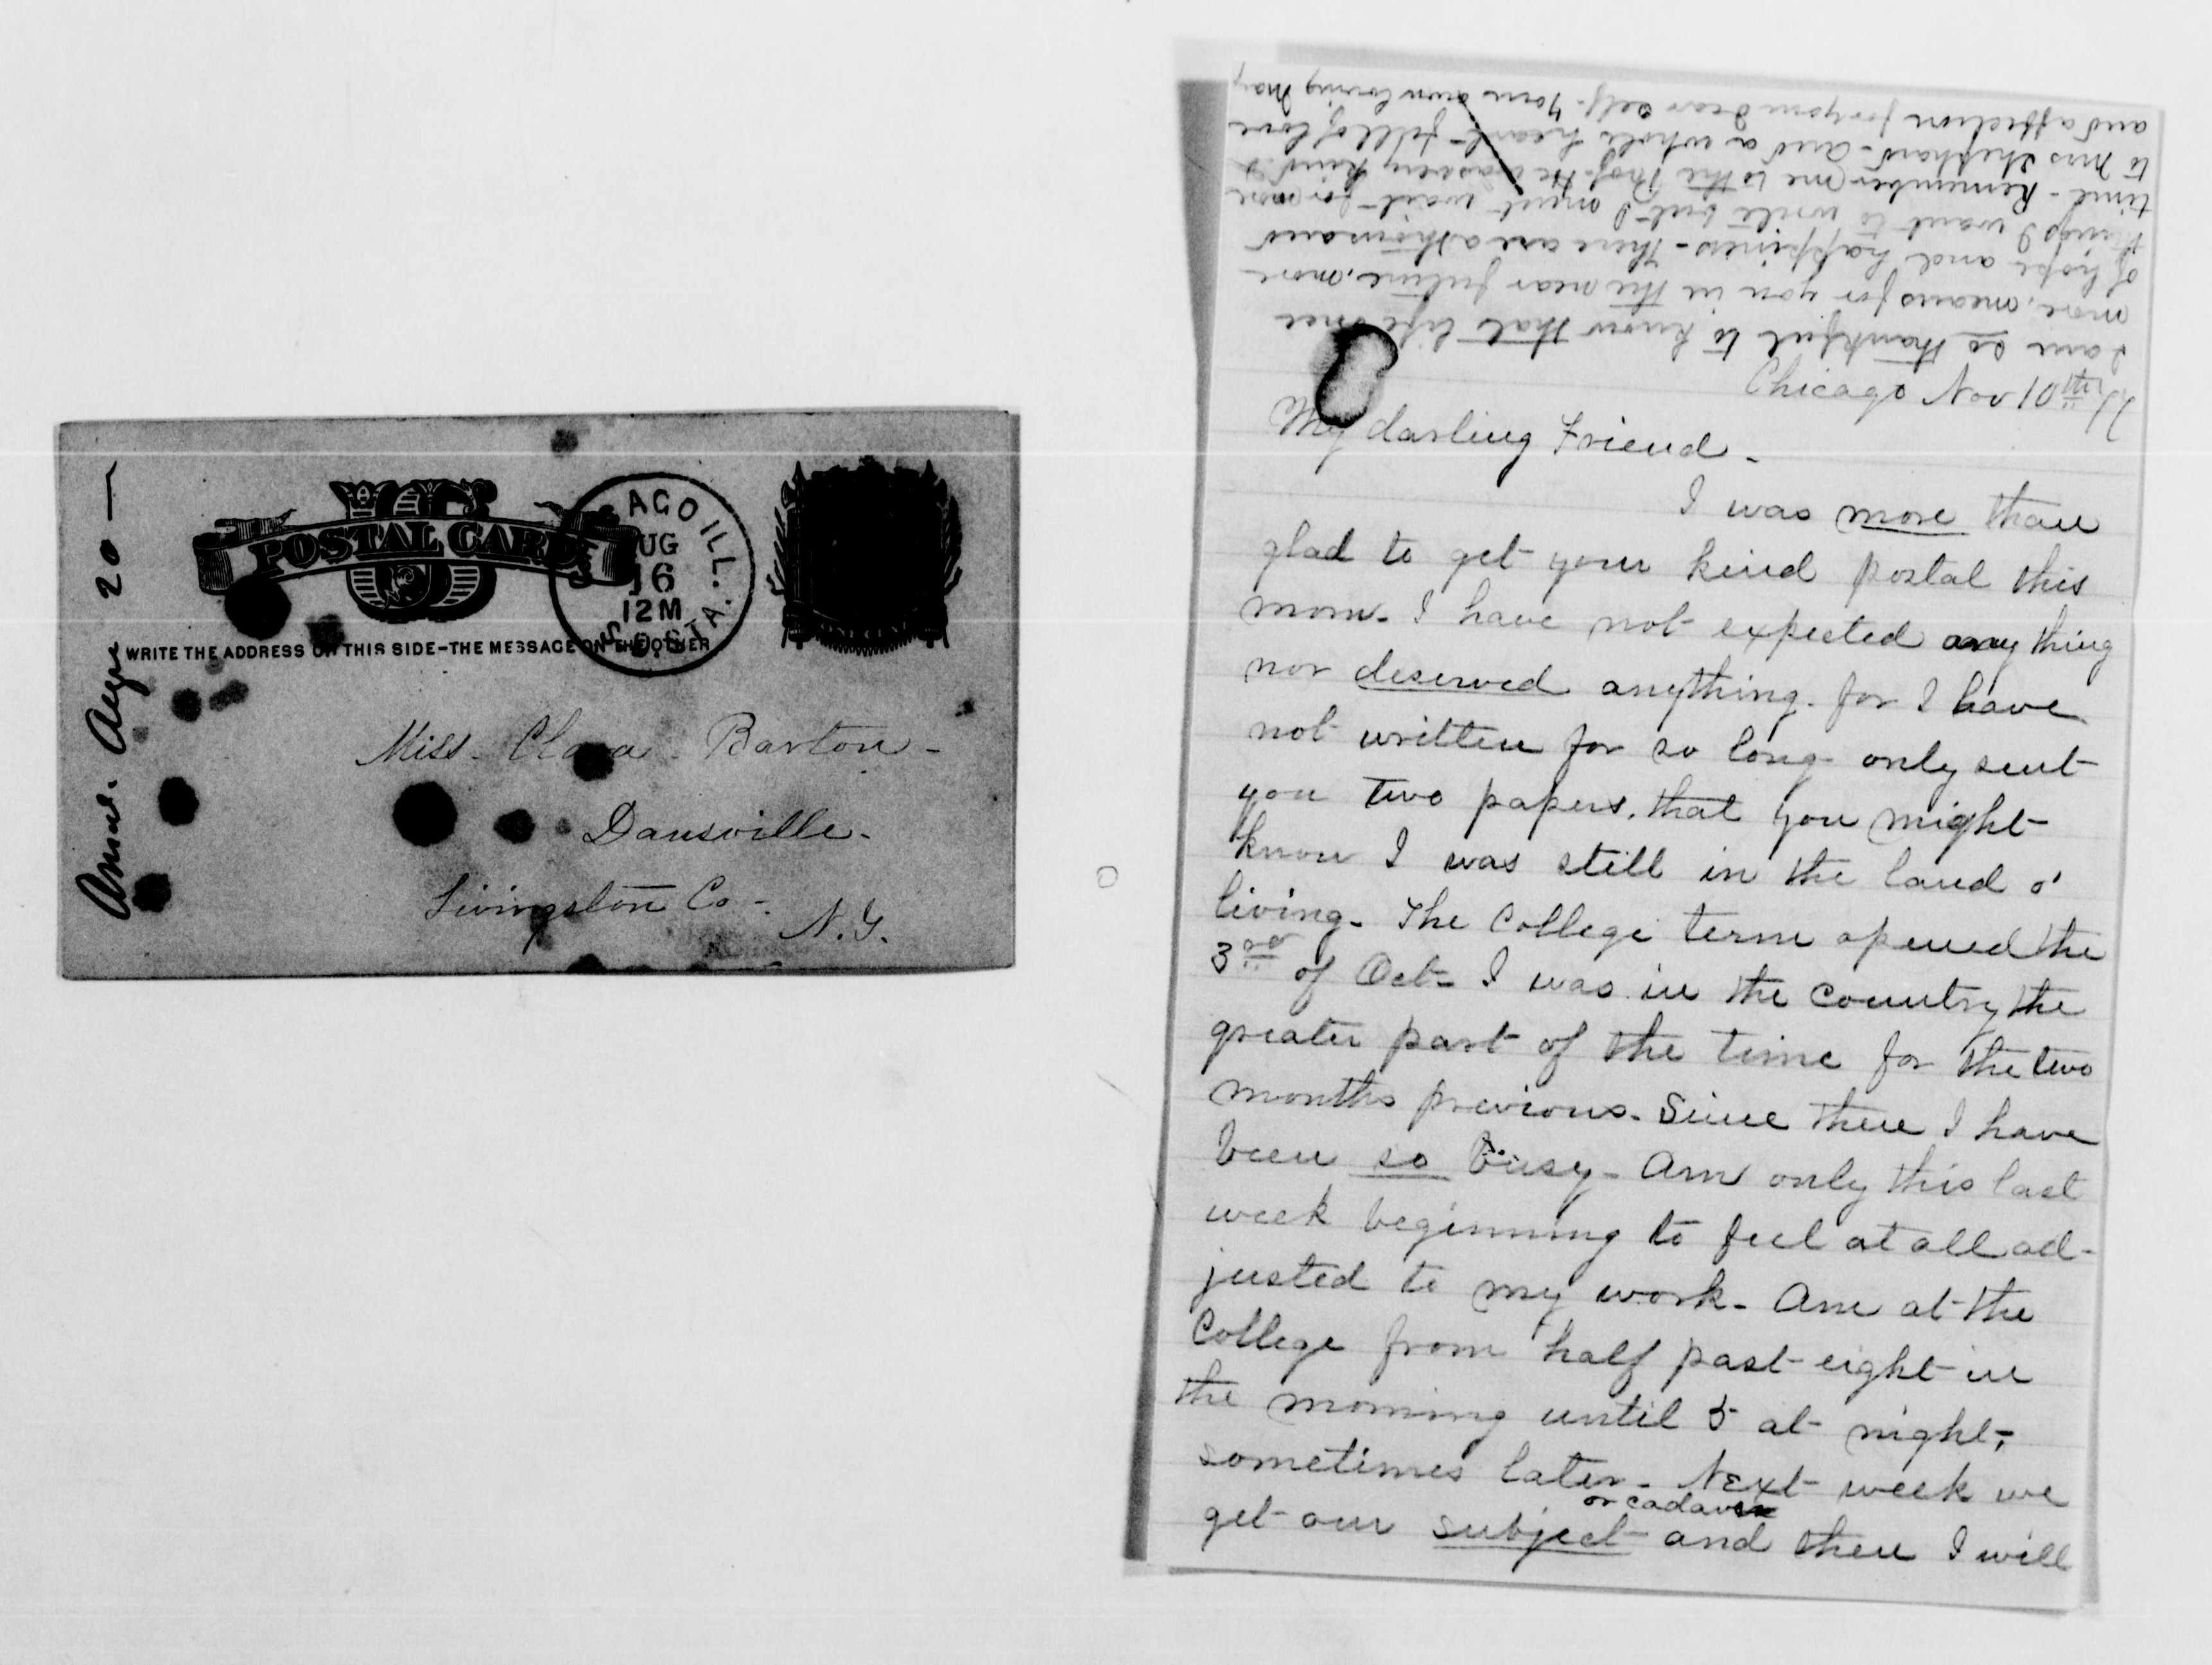 Ans. Aug 20 —
POSTAL CARD
AGO ILL.
UG
16
12 M
STA.
WRITE THE ADDRESS ON THIS SIDE-THE MESSAGE ON THE OTHER
Miss. Clara Barton -
Dansville -
Livingston Co -
N.Y.
I am so thankful to know that life once
more, means for you in the near future, more
of hope and happiness - There are a thousand
things I want to write but I must wait for more
time - Remember me to the Prof. He was very kind &
to Mrs Shephard - and a whole heart-full of love
and affection for your dear self - Your own loving May
Chicago Nov 10th
My darling Friend -
I was more than
glad to get your kind postal this
morn - I have not expected anything
nor deserved anything. for I have
not written for so long - only sent
you two papers, that you might
know I was still in the land o'
living - The College term opened the
3rd of Oct - I was in the country the
greater part of the time for the two
months previous - Since then I have
been so busy - Am only this last
week beginning to feel at all ad-
justed to my work - Am at the
College from half past eight in
the morning until 5 at night,
sometimes later - Next week we
or cadaver
get our subject and then I will